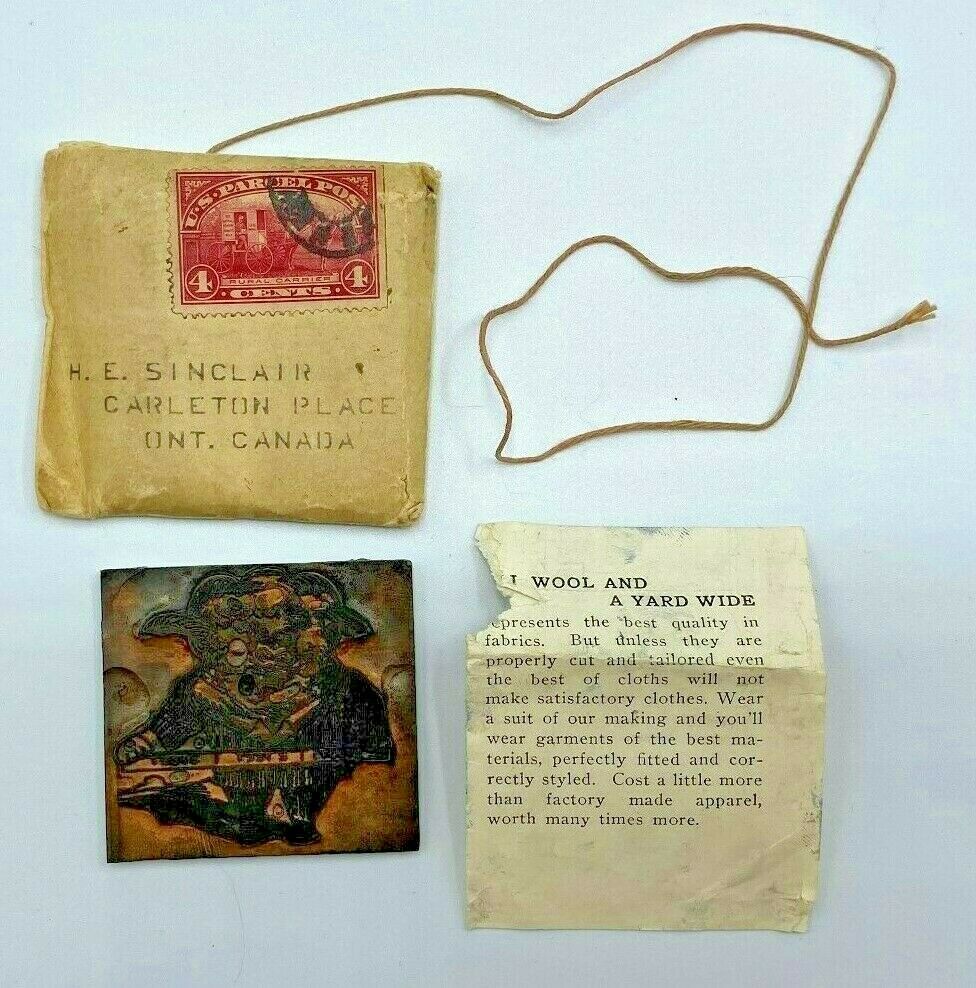 U.S. PARCEL POST
4 RURAL CARRIER 4
CENTS
H. E. SINCLAIR
CARLETON PLACE
ONT. CANADA
L WOOL AND
A YARD WIDE
epresents the best quality in
fabrics. But unless they are
properly cut and tailored even
the best of cloths will not
make satisfactory clothes. Wear
a suit of our making and you'll
wear garments of the best ma-
terials, perfectly fitted and cor-
rectly styled. Cost a little more
than factory made apparel,
worth many times more.